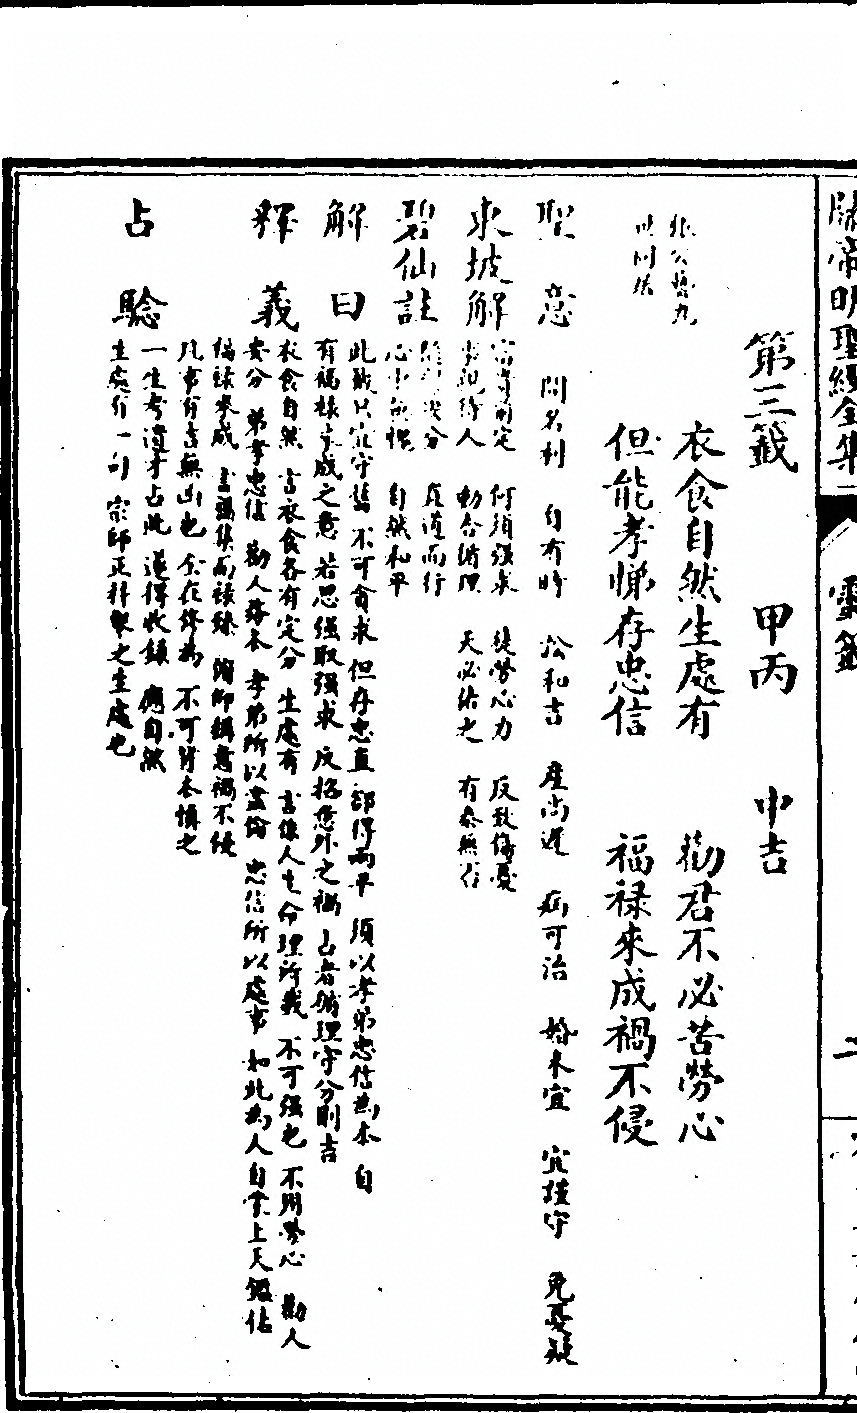 關帝明聖經全集 靈籤 二
第三籤 甲丙 中吉
張公藝九
世同居
衣食自然生處有 勸君不必苦勞心
但能孝悌存忠信 福祿來成禍不侵
聖意 問名利 自有時 訟和吉 產尚遲 病可治 婚未宜 宜謹守 免憂疑
東坡解 富貴前定 何須強求 徒勞心力 反致傷憂
事親待人 動合循理 天必佑之 有泰無否
碧仙註 隨緣安分 直道而行
心中無愧 自然和平
解曰 此籤只宜守舊 不可貪求 但存忠直 却得兩平 須以孝弟忠信為本 自
有福祿來成之意 若思強取強求 反招意外之禍 占者循理守分則吉
釋義 衣食自然 言衣食各有定分 生處有 言像人生命理所載 不可強也 不用勞心 勸人
安分 弟孝忠信 勸人務本 孝弟所以盡倫 忠信所以處事 如此為人自蒙上天鑑佑
福祿來成 言福集而祿臻 俯仰稱意禍不侵
凡事有吉無凶也 全在修為 不可背本慎之
占驗 一生考遺才占此 遂得收錄 應自然
生處有一句 宗師正科舉之生處也